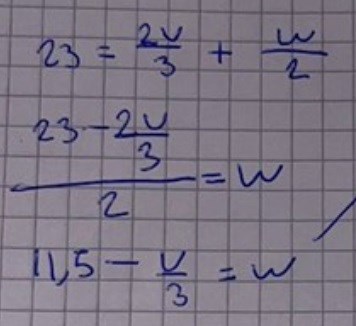 23 = 2v/3 + w/2
(23 - 2v/3)/2 = w
11,5 - v/3 = w